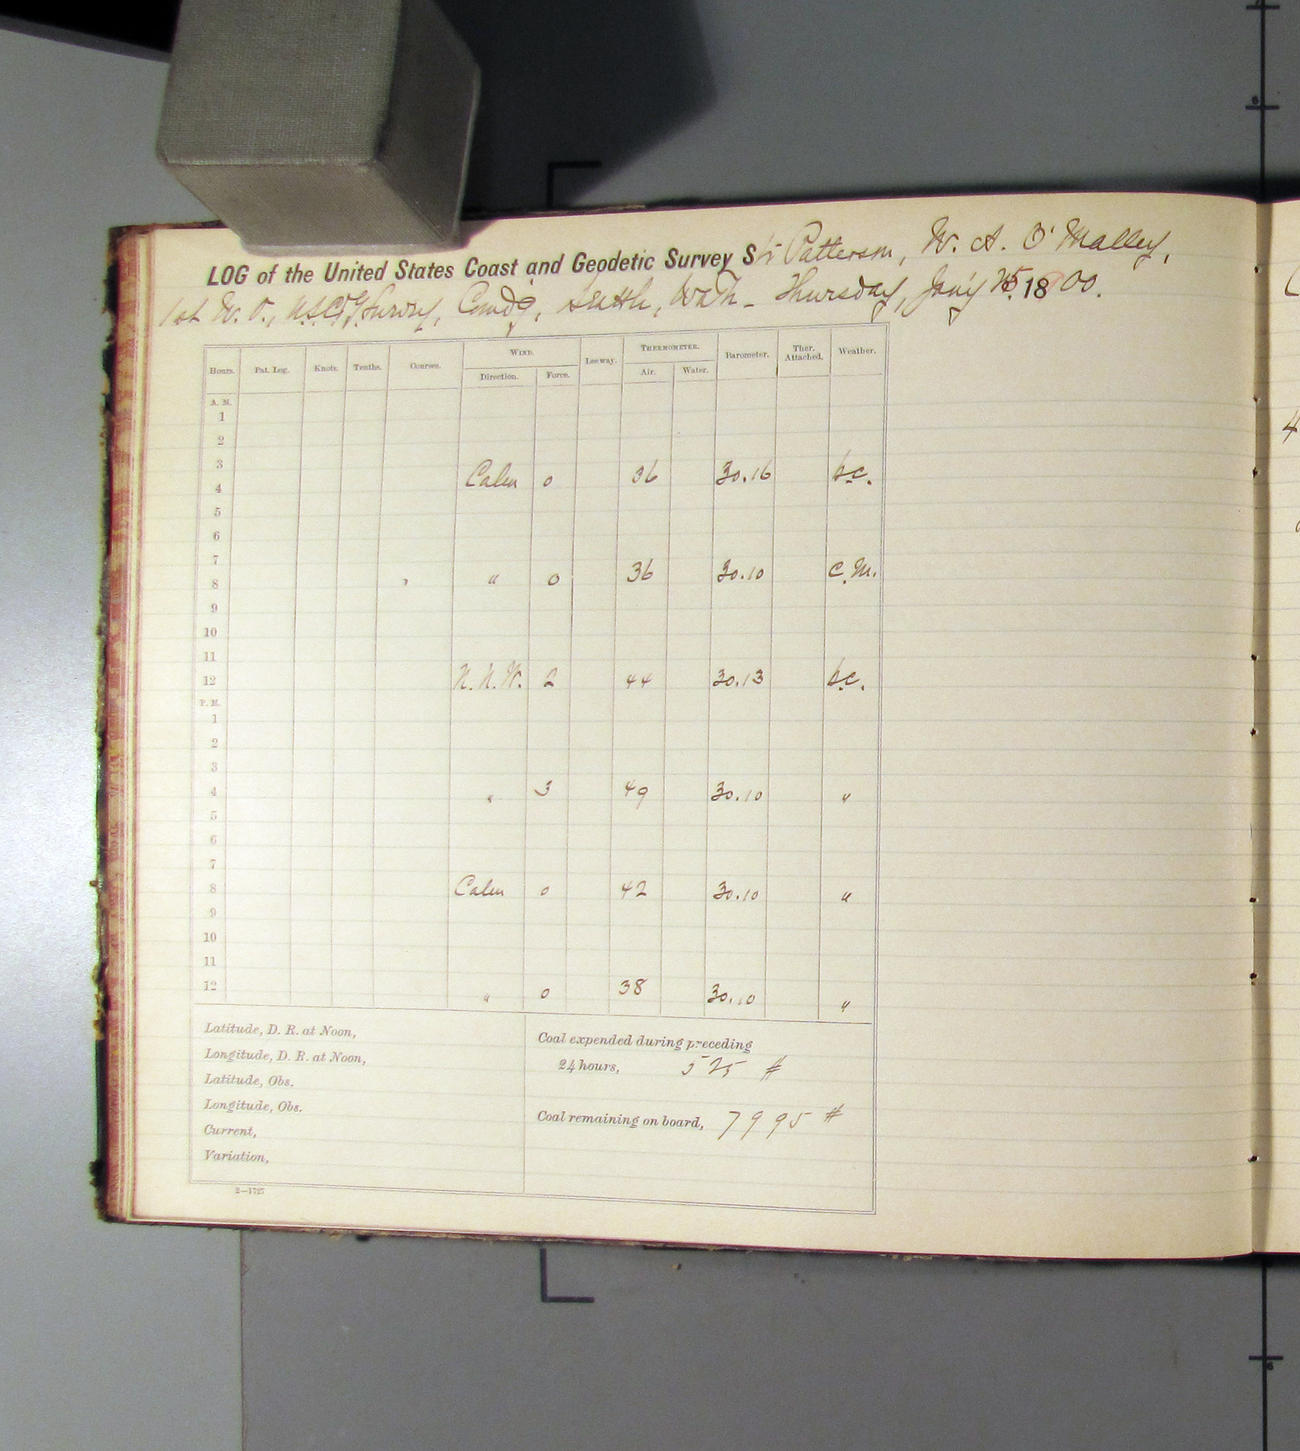 LOG of the United States Coast and Geodetic Survey Str Patterson, W. A. O'Malley,
1st W. O., U.S.C.&G. Survey, Comdg, Seattle, Wash - Thursday, Jan'y 18 00.
WIND. THERMOMETER.
Hours. Pat. Log. Knots. Tenths. Courses. Direction. Force. Leeway. Air. Water. Barometer. Ther. Attached. Weather.
A. M.
1
2
3
4 Calm 0 36 30.16 b.c.
5
6
7
8 " 0 36 30.10 c.m.
9
10
11
12 N.N.W. 2 44 30.13 b.c.
P. M.
1
2
3
4 " 3 49 30.10 "
5
6
7
8 Calm 0 42 30.10 "
9
10
11
12 " 0 38 30.10 "
Latitude, D. R. at Noon,
Longitude, D. R. at Noon,
Latitude, Obs.
Longitude, Obs.
Current,
Variation,
Coal expended during preceding
24 hours, 525 #
Coal remaining on board, 7995 #
2—1727